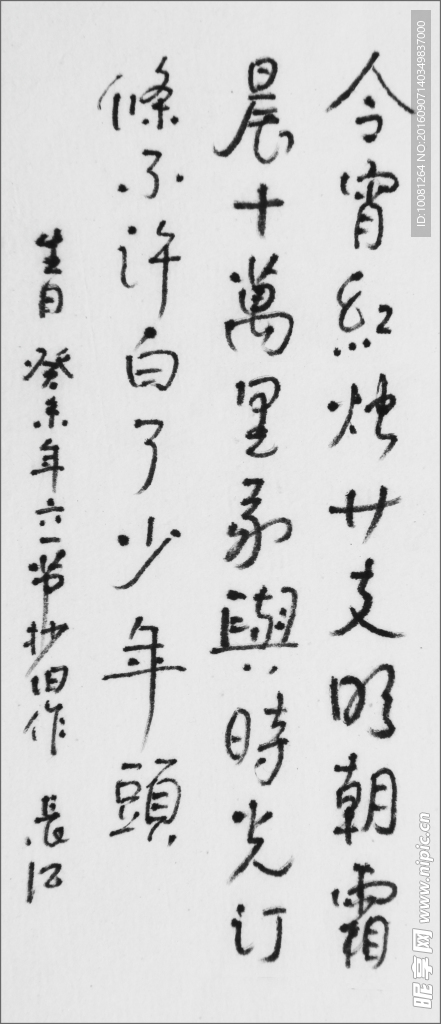 今宵红烛廿支明朝霜
晨十萬里家與時光订
條不許白了少年頭
生日 癸未年六一节抄旧作 長江
ID:10081264 NO:20160907140349837000
昵享网 www.nipic.cn